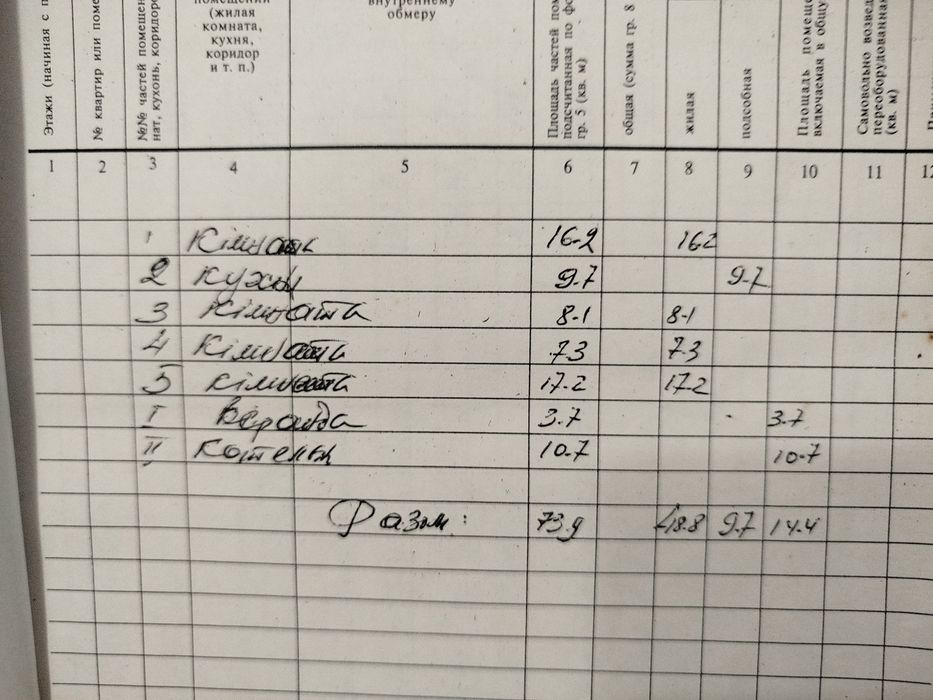 Этажи (начиная с п
№ квартир или поме
№№ частей помещен
нат, кухонь, коридоро
помещений
(жилая
комната,
кухня,
коридор
и т. п.)
внутреннему
обмеру
Площадь частей пом
подсчитанная по фо
гр. 5 (кв. м)
общая (сумма гр. 8
жилая
подсобная
Площадь помеще
включаемая в общу
Самовольно возвед
переоборудованная
(кв. м)
1 2 3 4 5 6 7 8 9 10 11 12
1 Кімната 16.2 16.2
2 Кухня 9.7 9.7
3 Кімната 8.1 8.1
4 Кімната 7.3 7.3
5 Кімната 17.2 17.2
I Веранда 3.7 3.7
II Котельн 10.7 10.7
Разом: 73.9 48.8 9.7 14.4